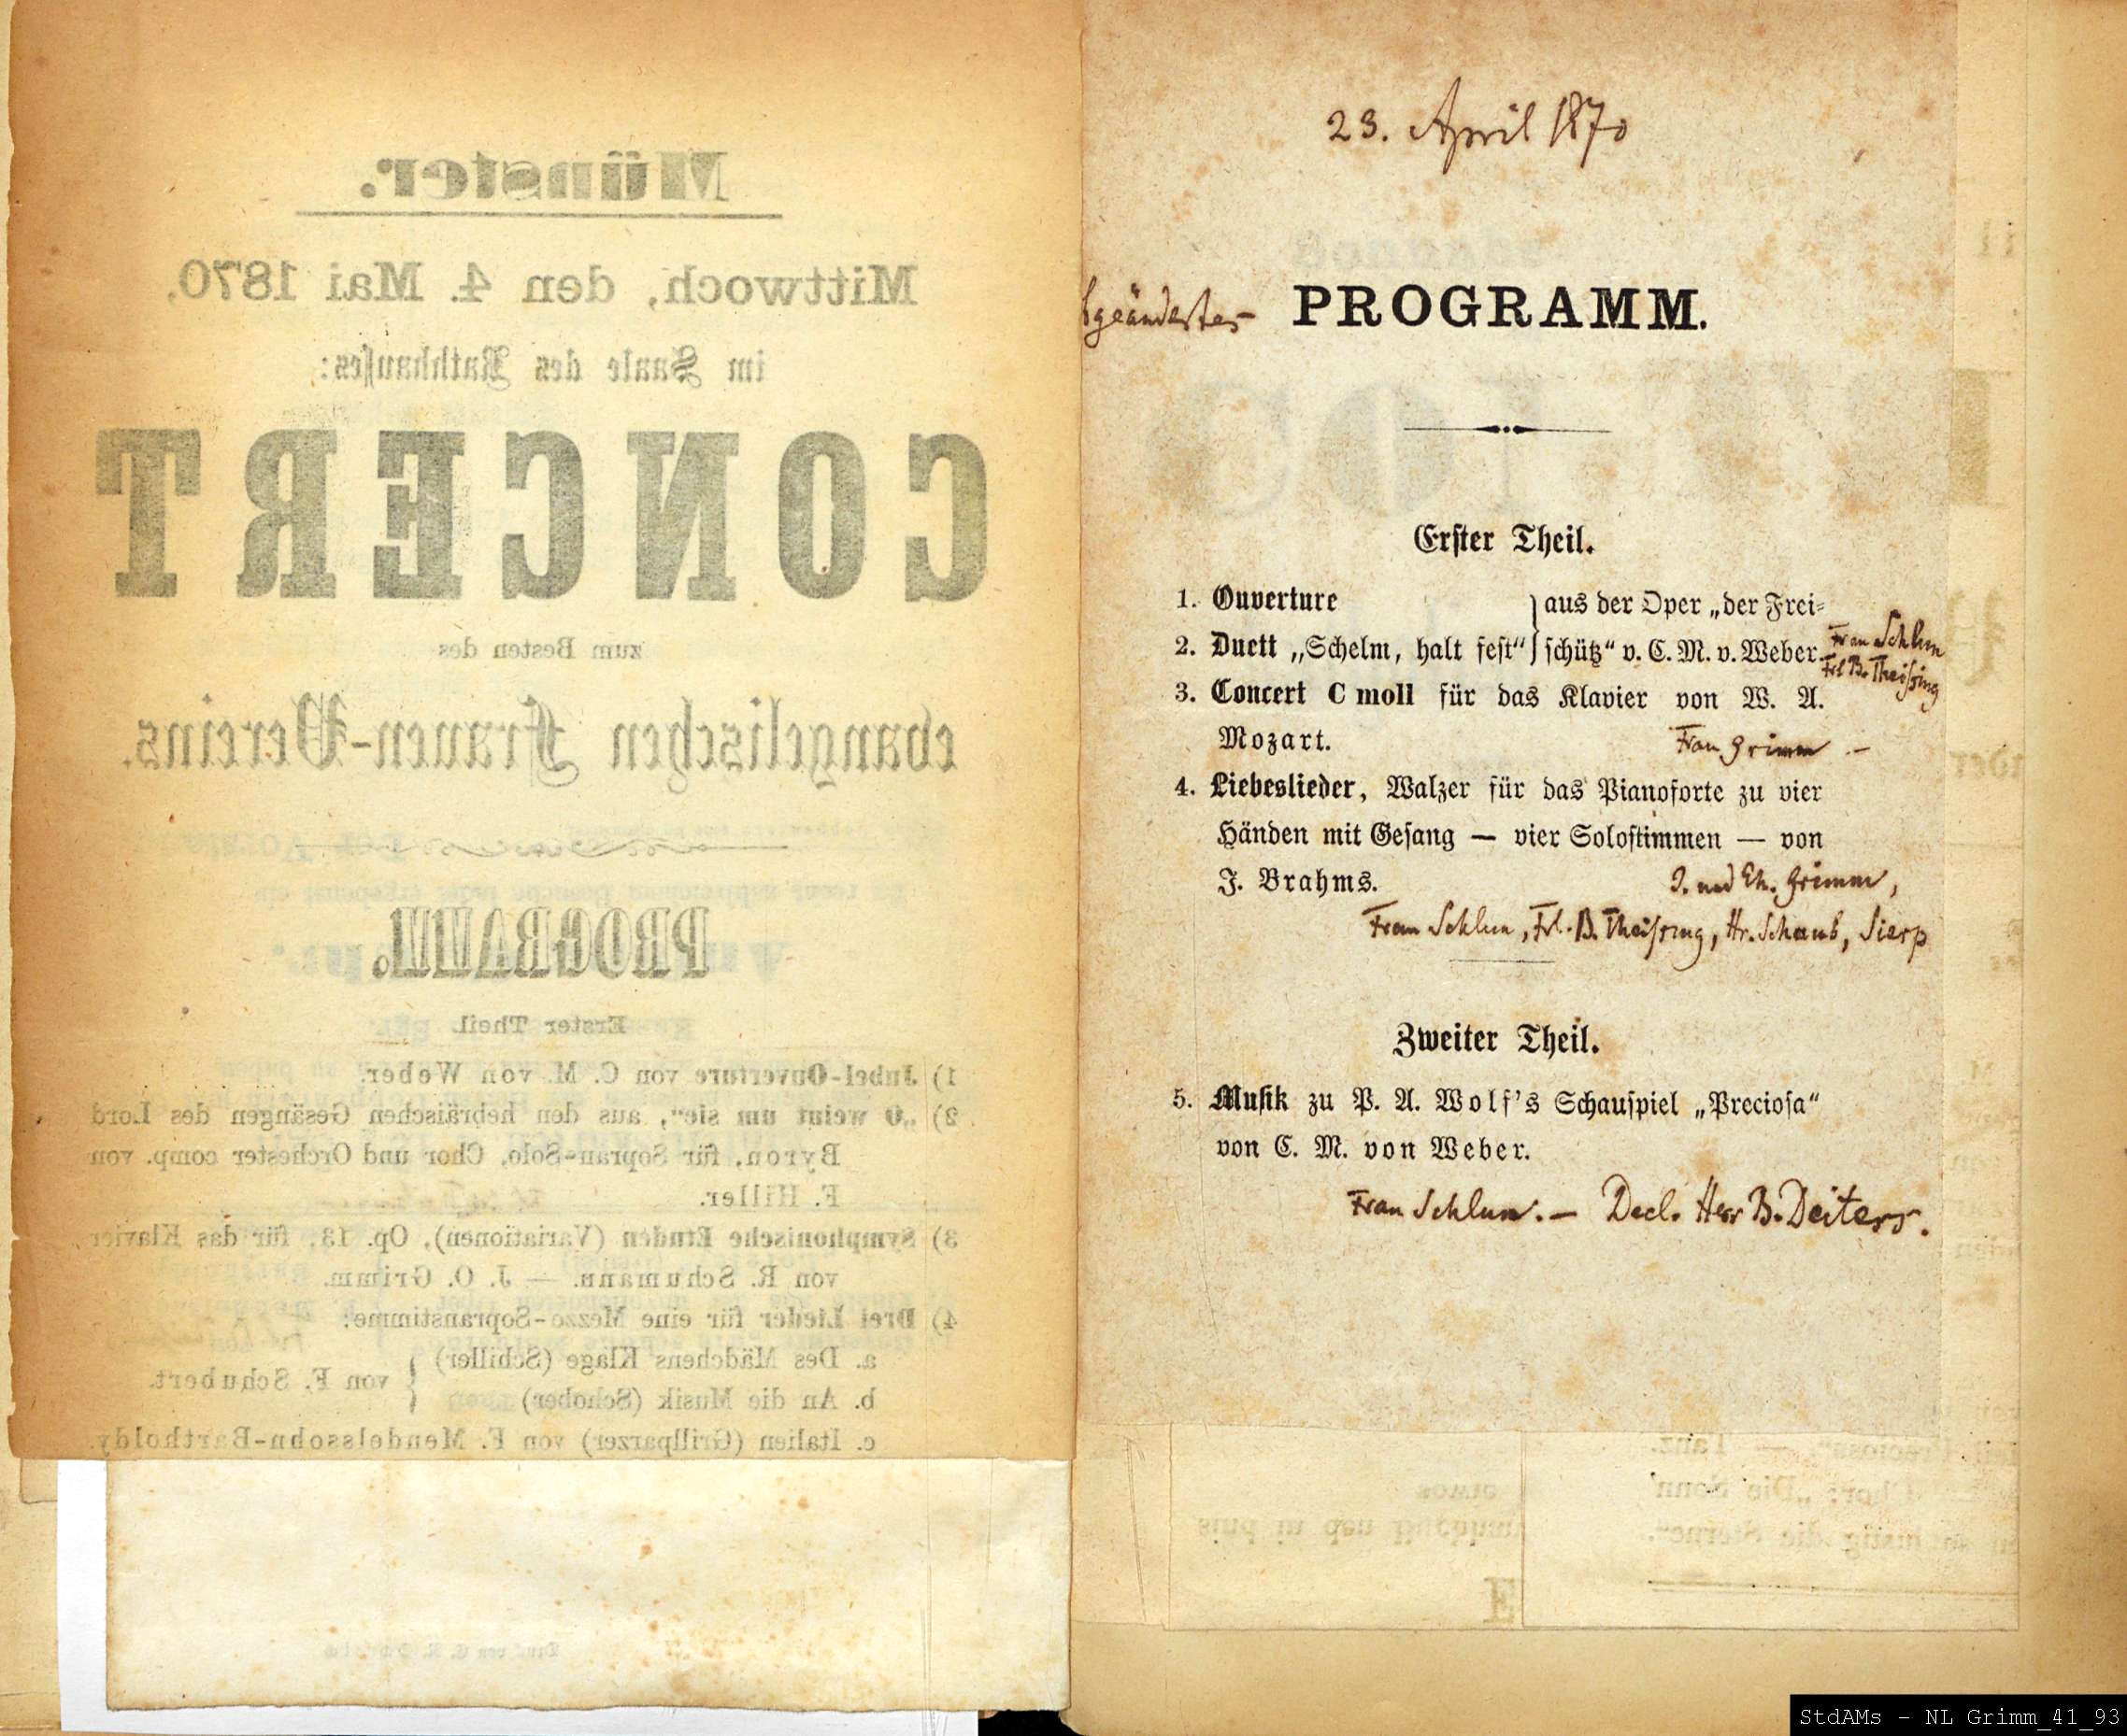 Münster.
Mittwoch, den 4. Mai 1870,
im Saale des Rathhauses:
CONCERT
zum Besten des
evangelischen Frauen-Vereins.
PROGRAMM.
Erster Theil.
1) Jubel-Ouverture von C. M. von Weber.
2) „O weint um sie“, aus den hebräischen Gesängen des Lord
Byron, für Sopran-Solo, Chor und Orchester comp. von
F. Hiller.
3) Symphonische Etuden (Variationen), Op. 13, für das Klavier
von R. Schumann. — J. O. Grimm.
4) Drei Lieder für eine Mezzo-Sopranstimme:
a. Des Mädchens Klage (Schiller)
b. An die Musik (Schober) } von F. Schubert.
c. Italien (Grillparzer) von F. Mendelssohn-Bartholdy.
23. April 1870
bgeändertes PROGRAMM.
Erſter Theil.
1. Ouverture } aus der Oper „der Frei-
2. Duett „Schelm, halt feſt“ } ſchütz“ v. C. M. v. Weber. Frau Schlun
Frl B. Theiſsing
3. Concert C moll für das Klavier von W. A.
Mozart. Frau Grimm —
4. Liebeslieder, Walzer für das Pianoforte zu vier
Händen mit Geſang — vier Soloſtimmen — von
J. Brahms. J. und Ph. Grimm,
Frau Schlun, Frl. B. Theiſsing, Hr. Schaub, Sierp
Zweiter Theil.
5. Muſik zu P. A. Wolf's Schauſpiel „Precioſa“
von C. M. von Weber.
Frau Schlun. — Decl. Herr B. Deiters.
StdAMs - NL Grimm_41_93